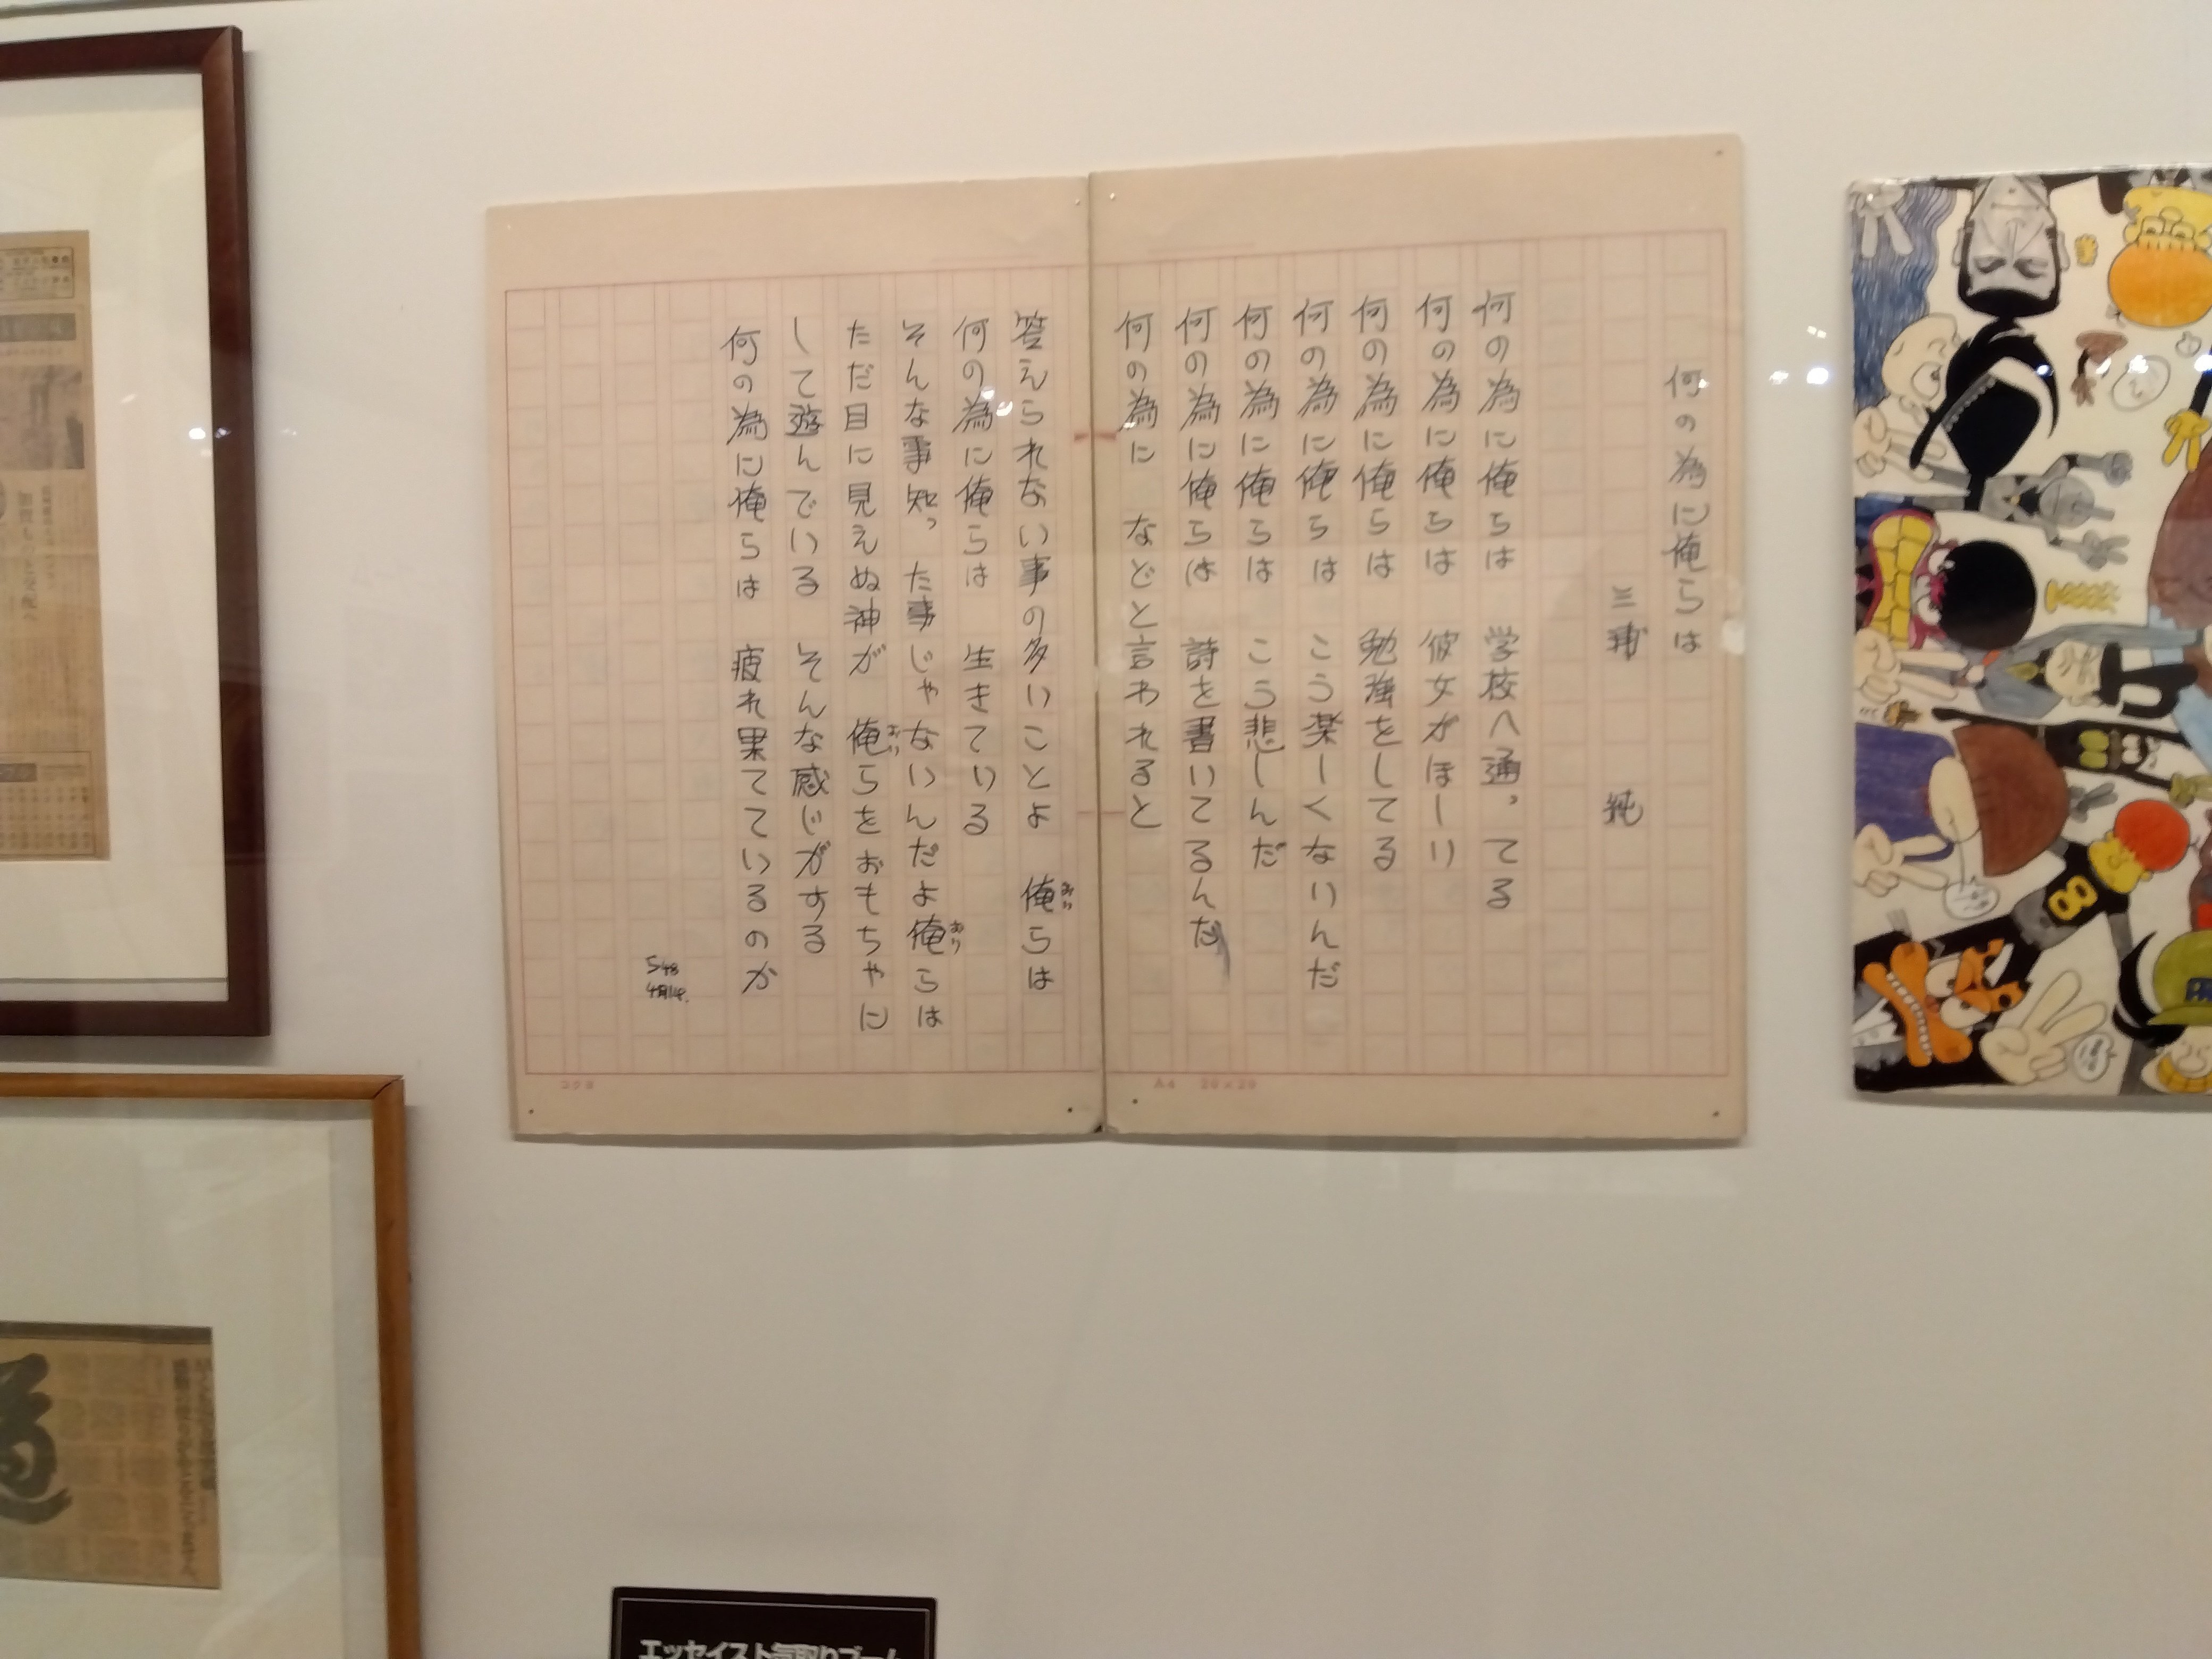 何の為に俺らは
三浦 純
何の為に俺らは 学校へ通ってる
何の為に俺らは 彼女がほしい
何の為に俺らは 勉強をしてる
何の為に俺らは こう楽しくないんだ
何の為に俺らは こう悲しんだ
何の為に俺らは 詩を書いてるんだ
何の為に などと言われると
答えられない事の多いことよ 俺らは
何の為に俺らは 生きている
そんな事知った事じゃないんだよ俺らは
ただ目に見えぬ神が 俺らをおもちゃに
して遊んでいる そんな感じがする
何の為に俺らは 疲れ果てているのか
S48
4月14.
コクヨ
A4 20×20
エッセイスト気取りブーム